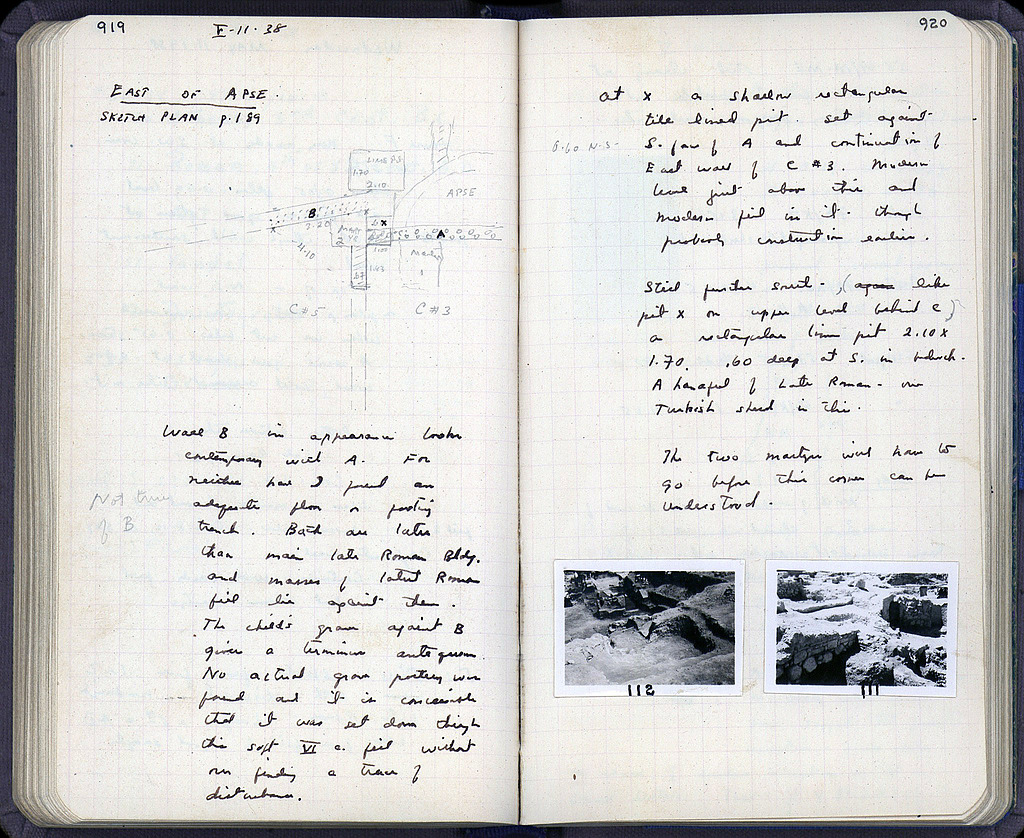 919
V-11-38
EAST OF APSE.
SKETCH PLAN p. 189
LIME PS
1.70
2.10
APSE
B
2.20
x
x
A
2
4.10
1.63
1
.67
C#5
C#3
Wall B in appearance looks
contemporary with A. For
neither have I found an
adequate floor or footing
trench. Both are later
than main late Roman Bldg.
and masses of latest Roman
fill lie against them.
The child's grave against B
gives a terminus ante quem.
No actual grave pottery was
found and it is conceivable
that it was set down through
this soft VI c. fill without
our finding a trace of
disturbance.
Not true
of B
920
At x a shallow rectangular
tile lined pit set against
S. face of A and continuation of
East wall of C #3. Modern
level just above this and
modern fill in it. though
probably construction earlier.
0.60 N.S.
Still further south - (again like
pit x on upper level behind C)
a rectangular lime pit 2.10 x
1.70. .60 deep at S. in bedrock.
A handful of Late Roman - one
Turkish sherd in this.
The two martyrs will have to
go before this corner can be
understood.
112
111